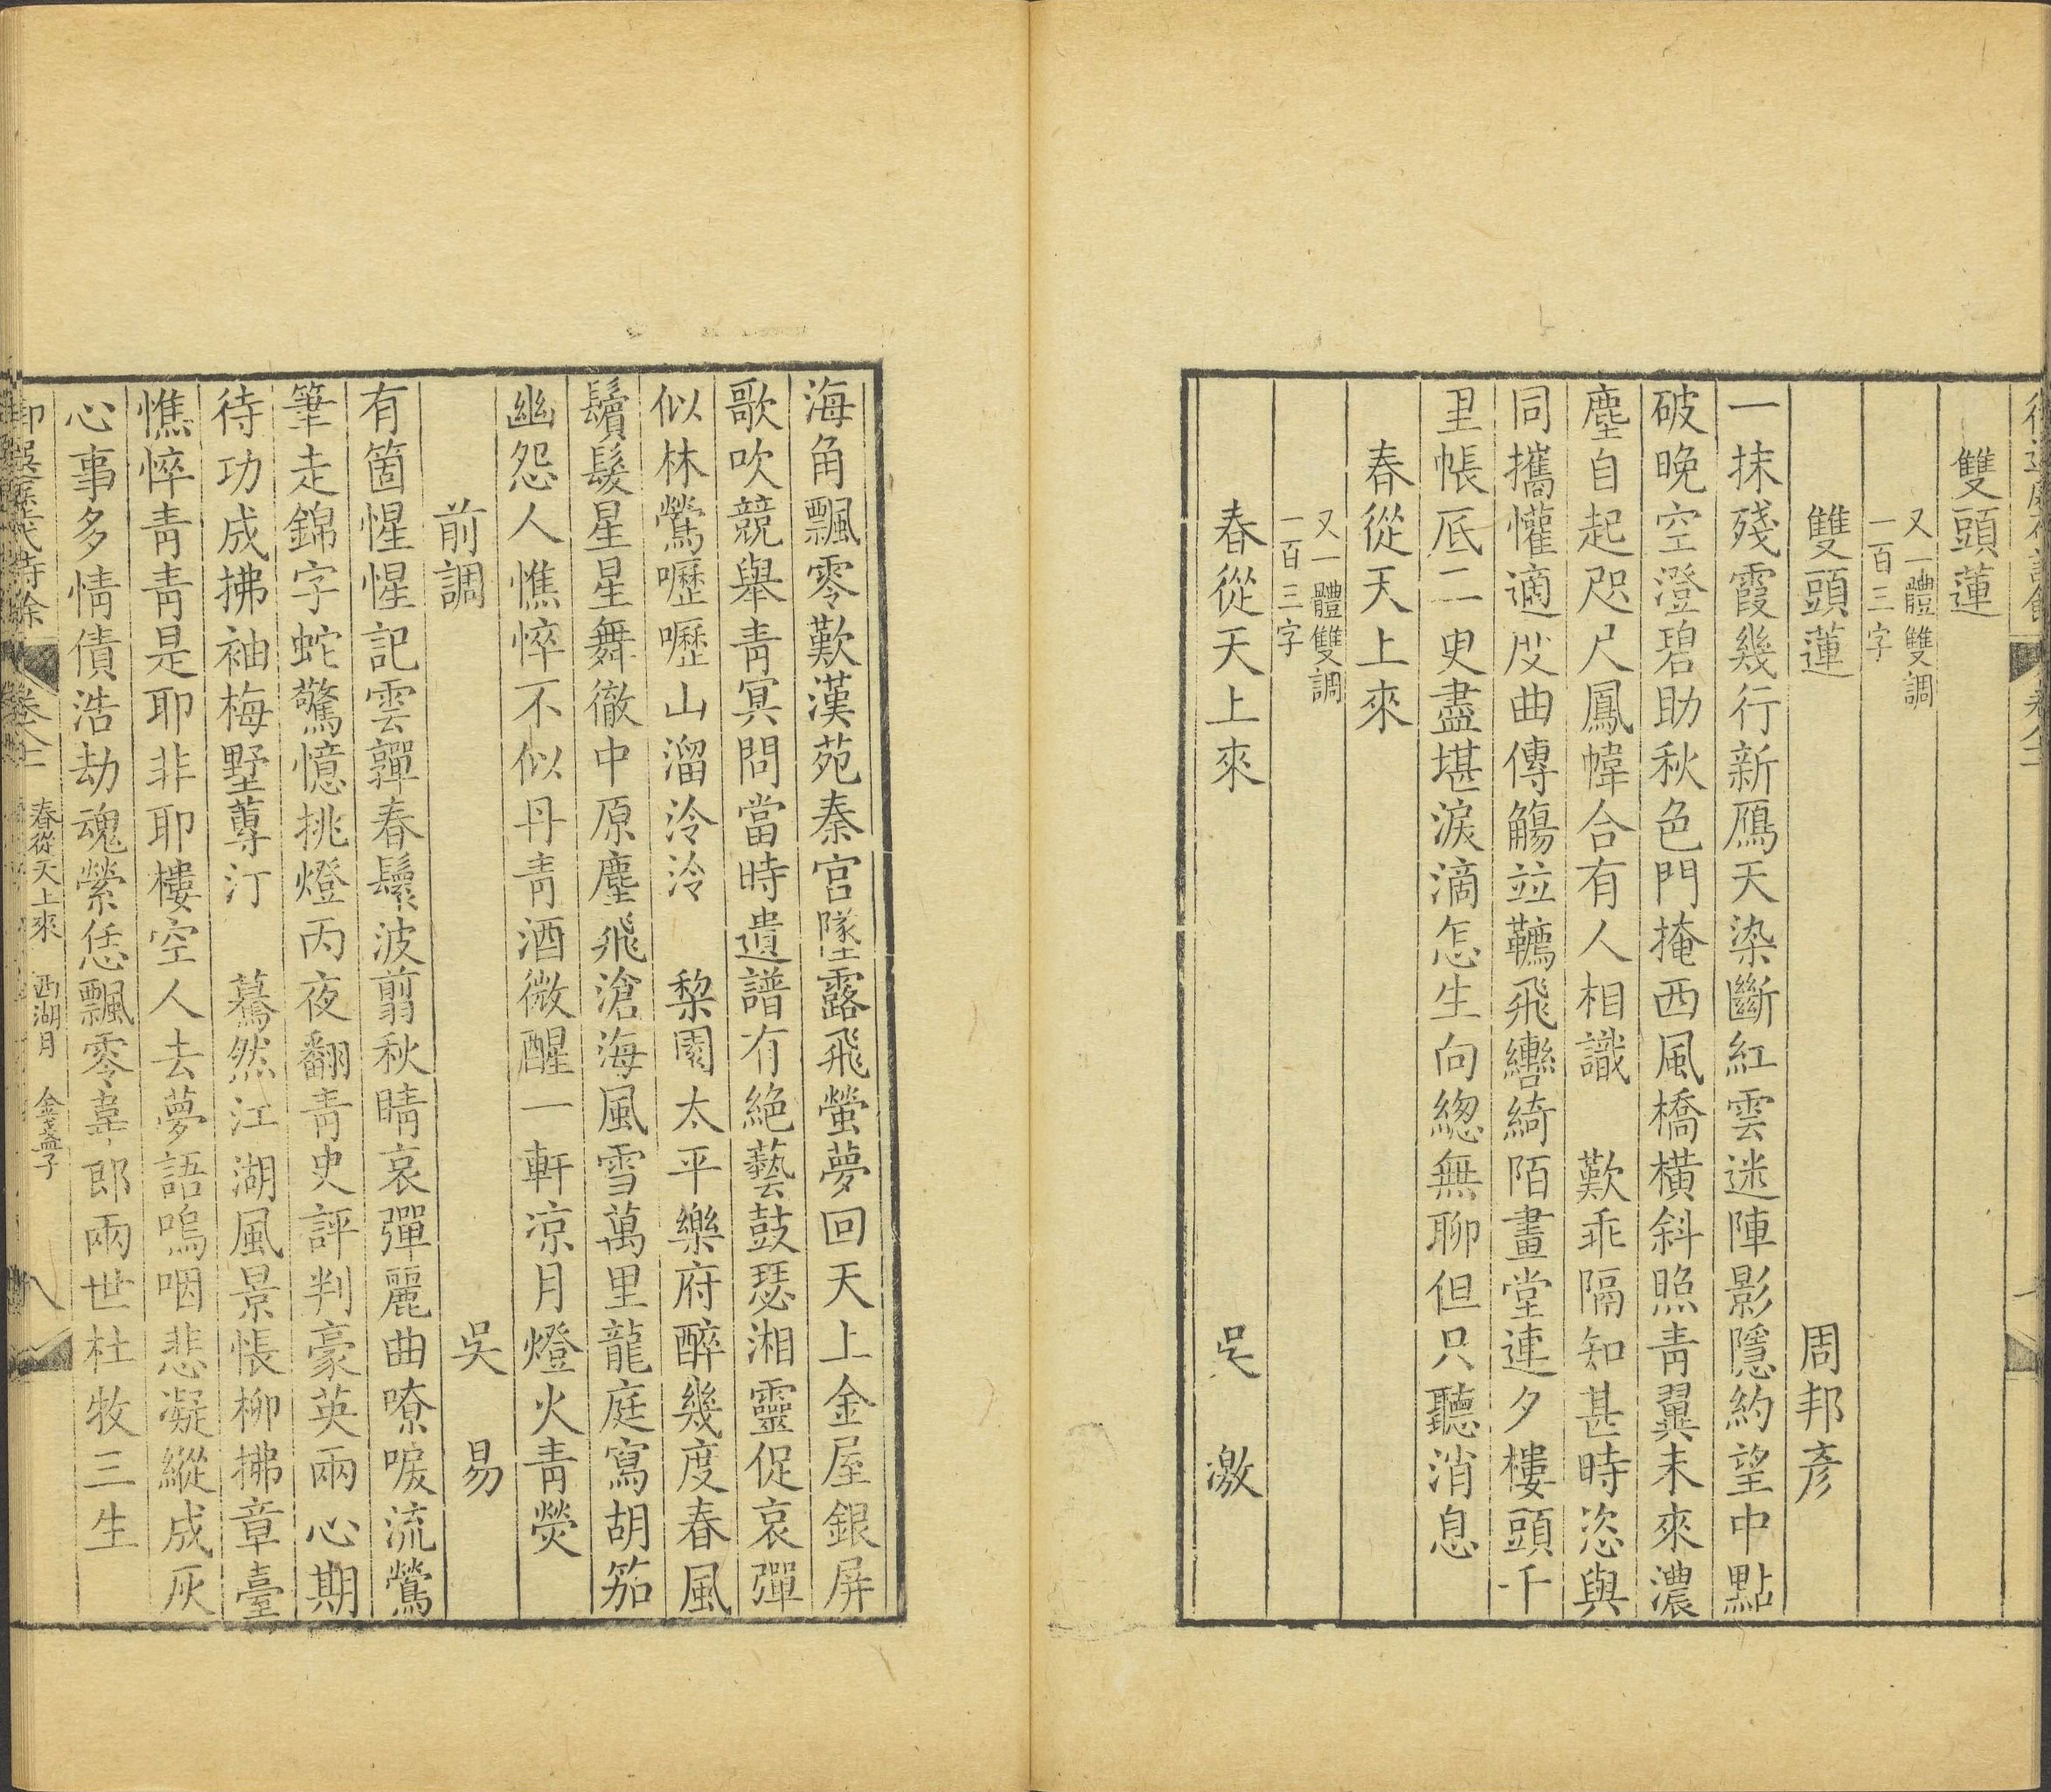 雙頭蓮
又一體雙調
一百三字
雙頭蓮 周邦彥
一抹殘霞幾行新鴈天染斷紅雲迷陣影隱約望中點
破晚空澄碧助秋色門掩西風橋橫斜照青翼未來濃
塵自起咫尺鳳幃合有人相識 歎乖隔知甚時恣與
同攜懽適度曲傳觴竝轡飛轡綺陌畫堂連夕樓頭千
里帳底三更盡堪淚滴怎生向緫無聊但只聽消息
春從天上來
又一體雙調
一百三字
春從天上來 吳激
海角飄零歎漢苑秦宮墜露飛螢夢回天上金屋銀屏
歌吹競舉青冥問當時遺譜有絕藝鼓瑟湘靈促哀彈
似林鶯嚦嚦山溜泠泠 棃園太平樂府醉幾度春風
鬢髮星星舞徹中原塵飛滄海風雪萬里龍庭寫胡笳
幽怨人憔悴不似丹青酒微醒一軒凉月燈火青熒
前調 吳易
有箇惺惺記雲嚲春鬟波翦秋晴哀彈麗曲嘹唳流鶯
筆走錦字蛇驚憶挑燈丙夜翻青史評判豪英兩心期
待功成拂袖梅墅蓴汀 驀然江湖風景悵柳拂章臺
憔悴青青是耶非耶樓空人去夢語嗚咽悲凝縱成灰
心事多情債浩劫魂縈恁飄零韋郎兩世杜牧三生
御選歷代詩餘 卷八十二 春從天上來 西湖月 金盞子 八